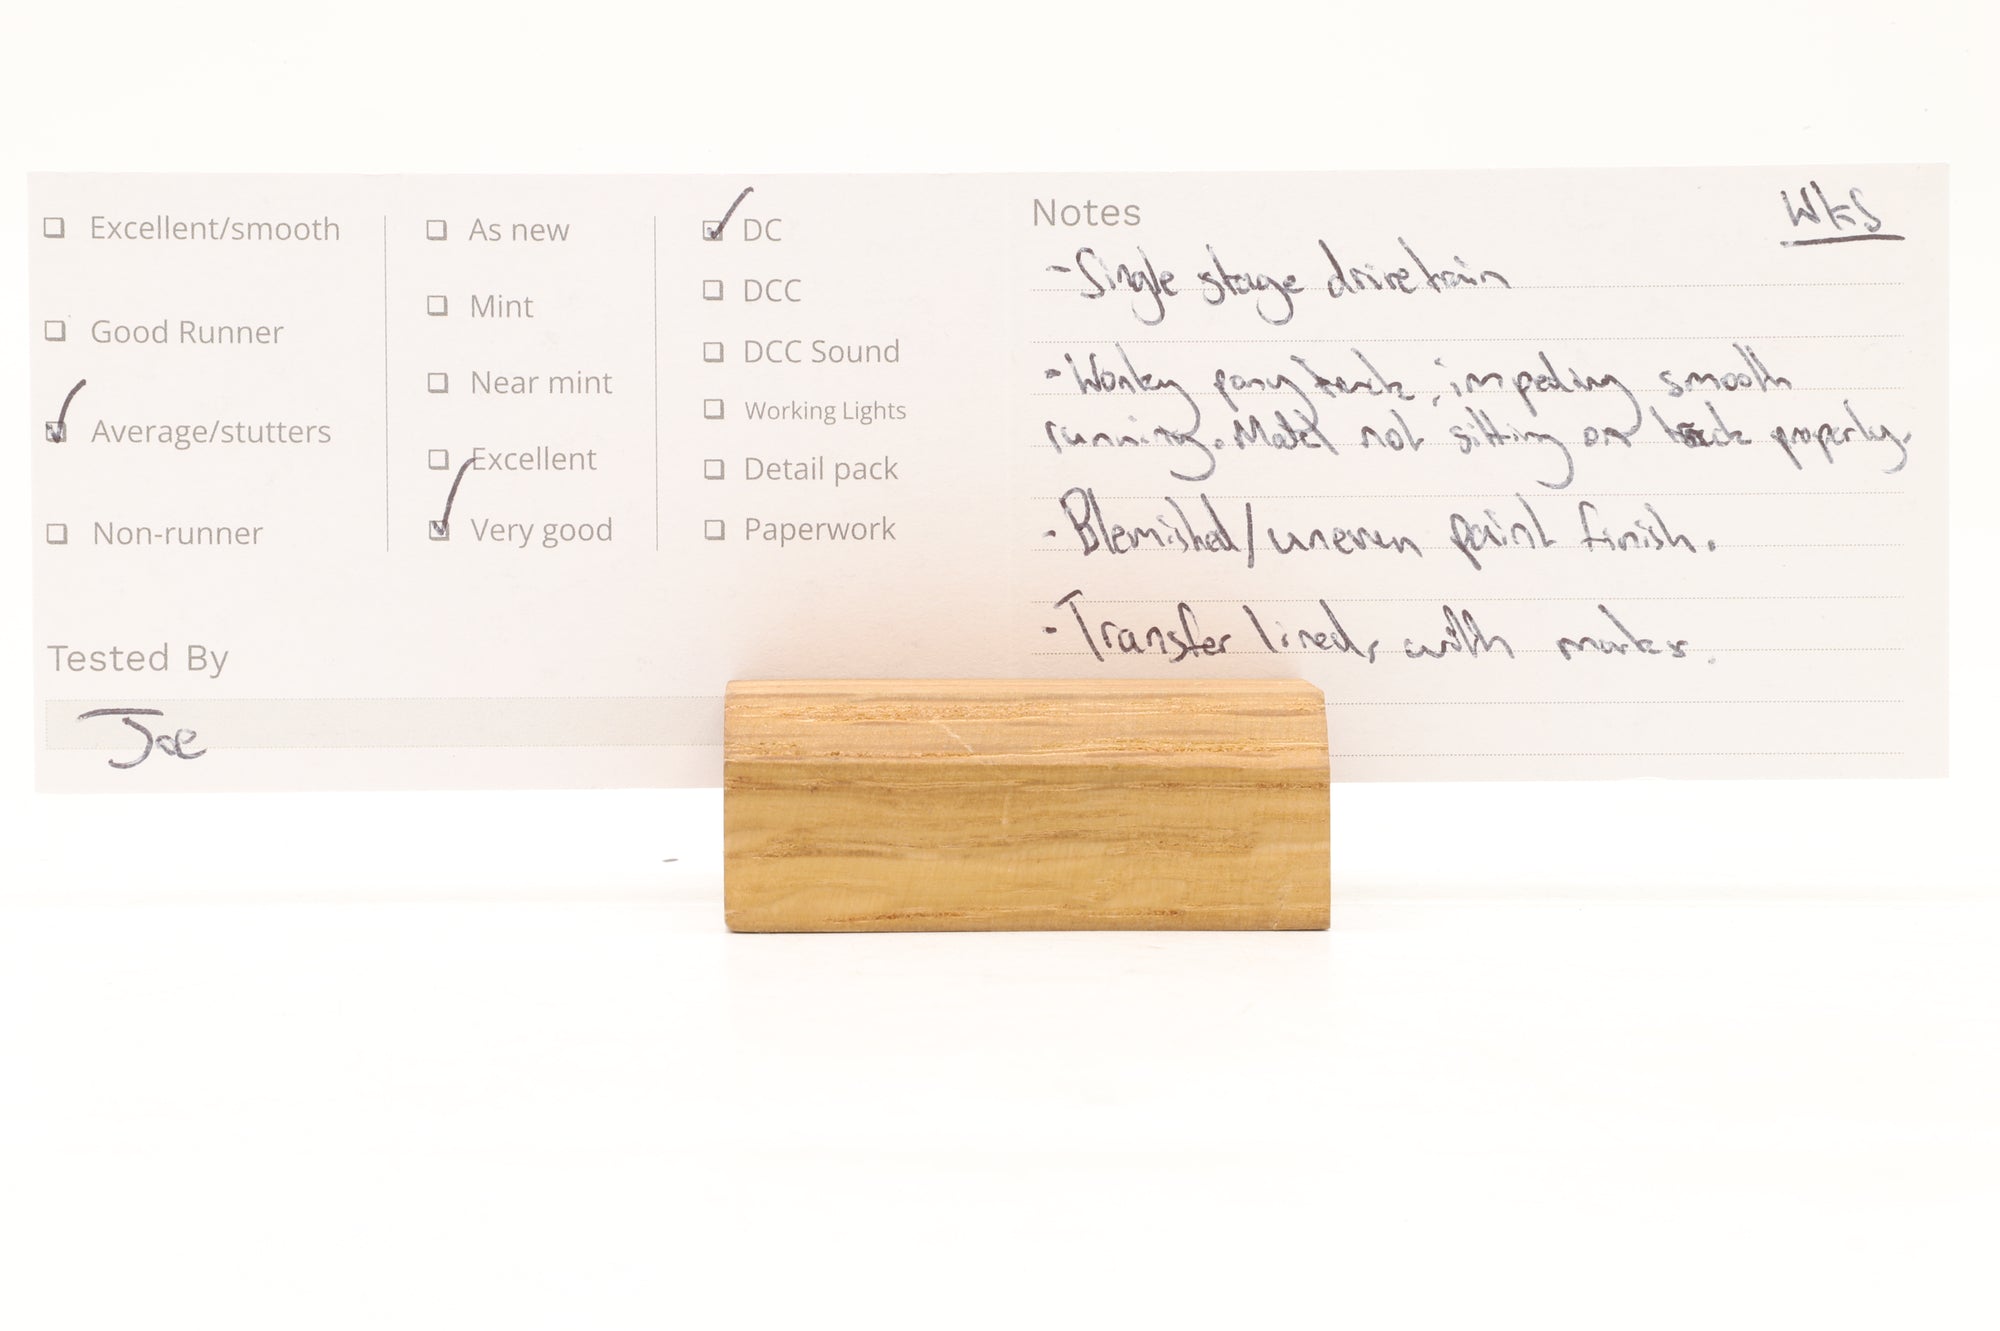 Excellent/smooth
Good Runner
Average/stutters
Non-runner
As new
Mint
Near mint
Excellent
Very good
DC
DCC
DCC Sound
Working Lights
Detail pack
Paperwork
Tested By
Joe
Notes
WKS
- Single stage drivetrain
- Wonky pony truck, impeding smooth
running. Model not sitting on track properly.
- Blemished/uneven paint finish.
- Transfer lined, with marks.